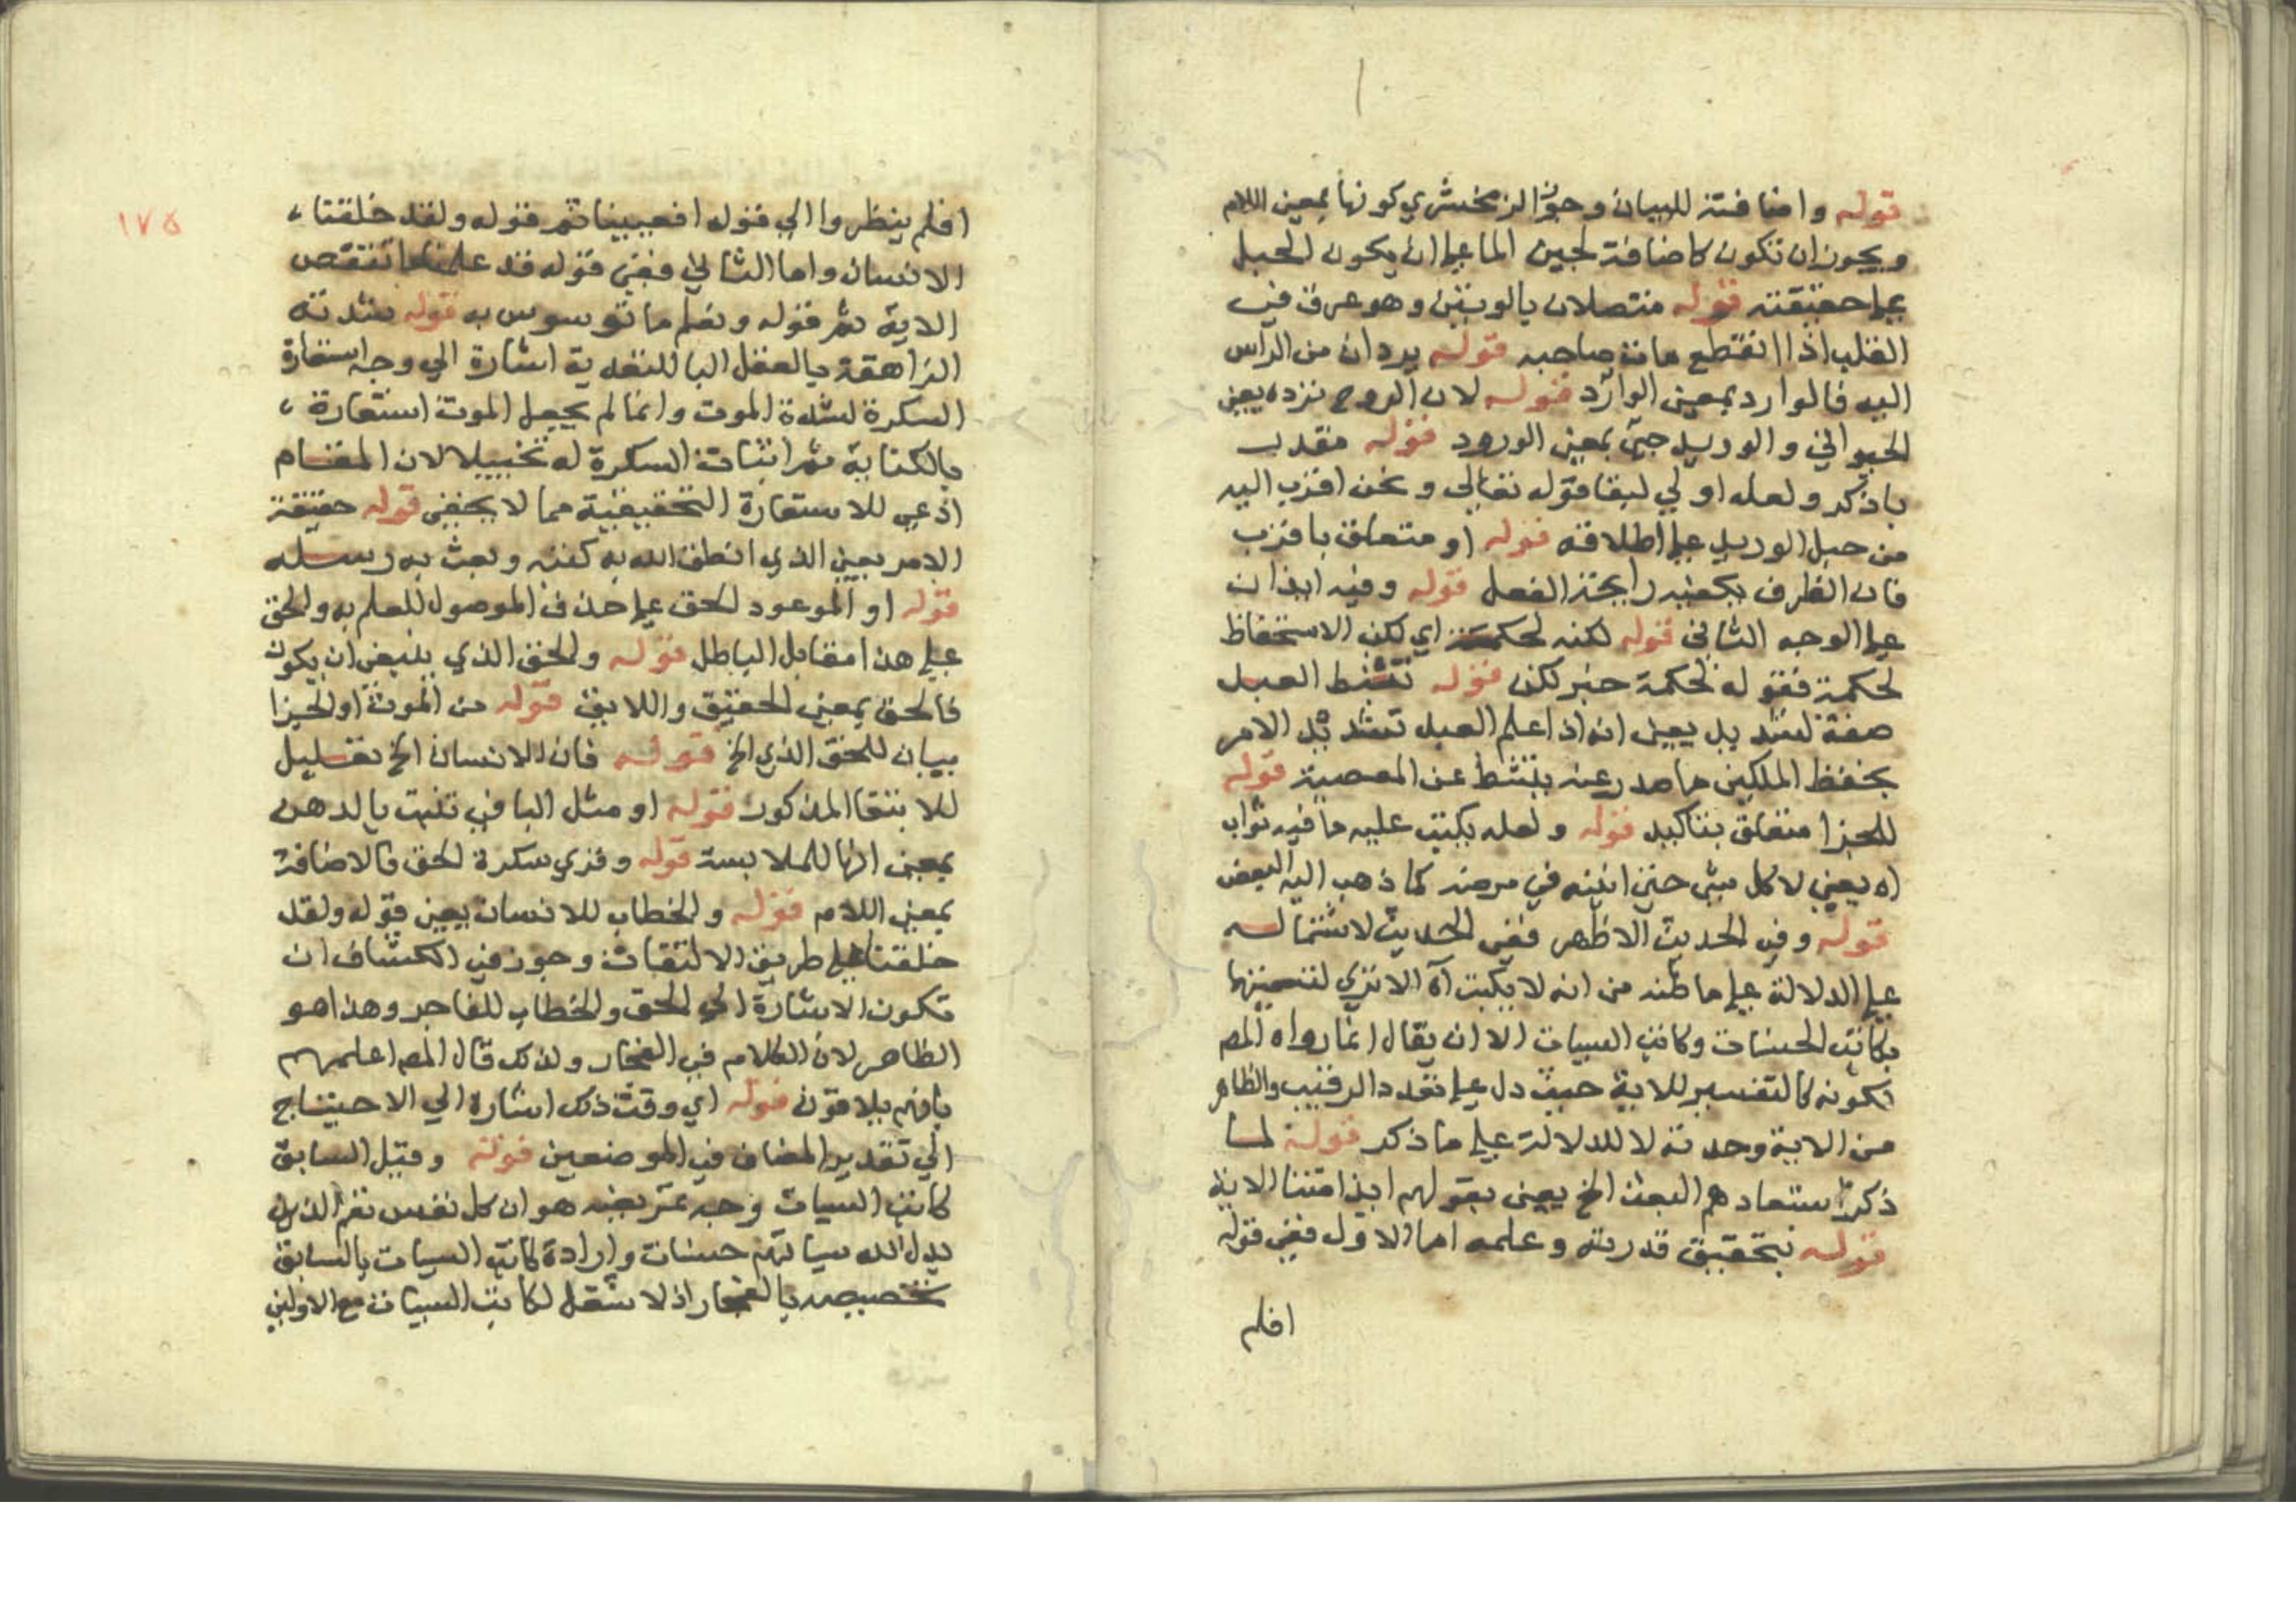 قوله واضافته للبيان وجوز الزمخشري كونها بمعنى اللام
ويجوز ان تكون كاضافة لجين الما على ان يكون الحبل
على حقيقته قوله متصلان بالوتين وهو عرق في
القلب اذا انقطع مات صاحبه قوله يردان من الرأس
اليه فالوارد بمعنى الوارد قوله لان الروح ترده يعني
الحيواني والوريد جئ بمعنى الورود قوله مقدر
باذكر ولعله اولي لبقا قوله تعالى ونحن اقرب اليه
من حبل الوريد على اطلاقه قوله او متعلق باقرب
فان الظرف يكفيه رايحة الفعل قوله وفيه ايذان
على الوجه الثاني قوله لكنه لحكمة اي لكن الاستحفاظ
لحكمة فقوله لحكمة خبر لكن قوله تثبط العبد
صفة لتشديد يعنى انه اذا علم العبد تشديد الامر
بحفظ الملكين ما صدر عنه يتثبط عن المعصية قوله
للجزا متعلق بتاكيد قوله ولعله يكتب عليه ما فيه ثواب
اه يعني لا كل شئ حتى انينه في مرضه كما ذهب اليه البعض
قوله وفي الحديث الاظهر ففي الحديث لاشتماله
على الدلالة على ما ظنه من انه لا يكتب اه الا تري لتعيينها
بكاتب الحسنات وكاتب السيات الا ان يقال انما رواه المص
لكونه كالتفسير للاية حيث دل على تعدد الرقيب والظاهر
من الاية وحدته لا للدلالة على ما ذكر قوله لما
ذكر استبعادهم البعث الخ يعنى بقولهم ايذا متنا الاية
قوله بتحقيق قدرته وعلمه اما الاول ففى قوله
افلم
١٧٥
افلم ينظروا الي قوله افعيينا ثم قوله ولقد خلقنا
الانسان واما الثاني ففى قوله قد علمنا ما تنقص
الاية ثم قوله ونعلم ما توسوس به قوله شدته
الزاهقة بالعقل البا للتعدية اشارة الي وجه استعارة
السكرة لشدة الموت وانما لم يجعل الموت استعارة
بالكناية ثم اثبات السكرة له تخييلا لان المقام
ادعي للاستعارة التحقيقية مما لا يخفى قوله حقيقة
الامر يعني الذي انطق الله به كتبه وبعث به رسله
قوله او الموعود الحق على حذف الموصول للعلم به والحق
على هذا مقابل الباطل قوله والحق الذي ينبغي ان يكون
فالحق بمعنى الحقيق واللايق قوله من الموت او الجزا
بيان للحق الذي الخ قوله فان الانسان الخ تعليل
للابتغا المذكور قوله او مثل البا في تنبت بالدهن
يعني انها للملابسة قوله وقري سكرة الحق فالاضافة
بمعني اللام قوله والخطاب للانسان يعني قوله ولقد
خلقنا على طريق الالتفات وجوز في الكشاف ان
تكون الاشارة الي الحق والخطاب للفاجر وهذا هو
الظاهر لان الكلام في الفجار ولذلك قال المص اعلمهم
بانهم يلاقون قوله اي وقت ذلك اشارة الي الاحتياج
الي تقدير المضاف في الموضعين قوله وقيل السابق
كاتب السيات وجه تمريضه هو ان كل نفس تعم الذين
يبدل الله سياتهم حسنات وارادة كاتب السيات بالسابق
تخصيصه بالفجار اذ لا شغل لكاتب السيات مع الاولين